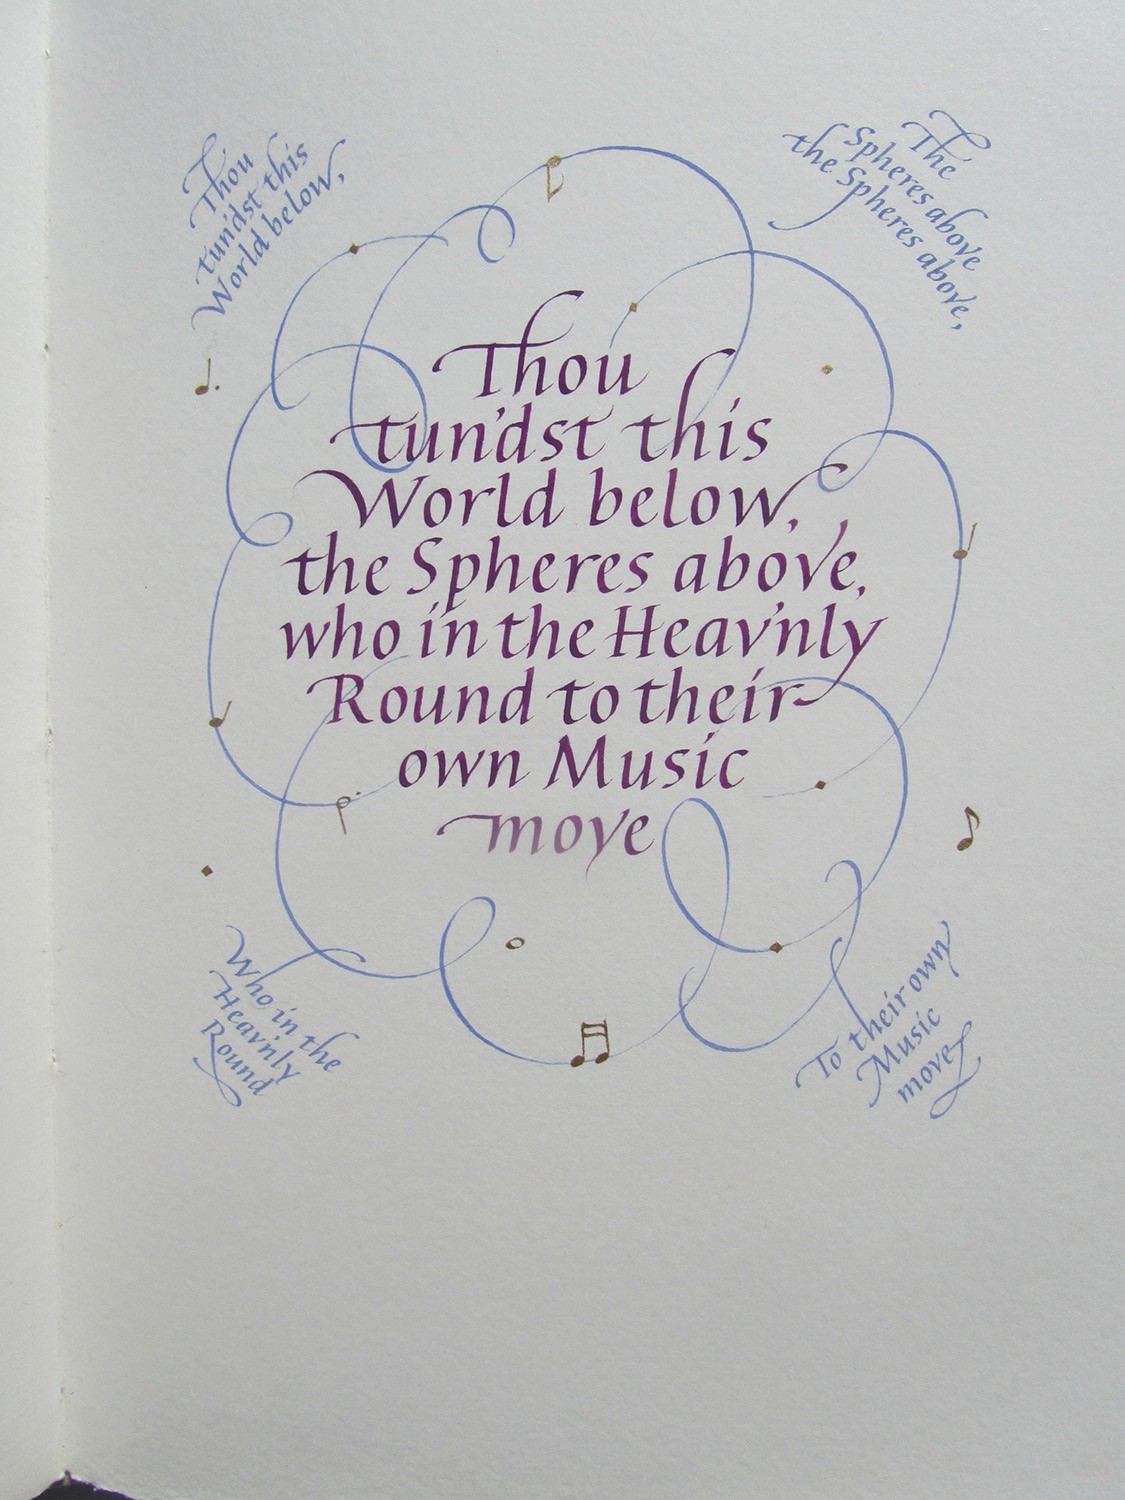 Thou
tun'dst this
World below,
The
Spheres above
the Spheres above,
Thou
tun'dst this
World below,
the Spheres above,
who in the Heav'nly
Round to their
own Music
move
Who in the
Heav'nly
Round
To their own
Music
move